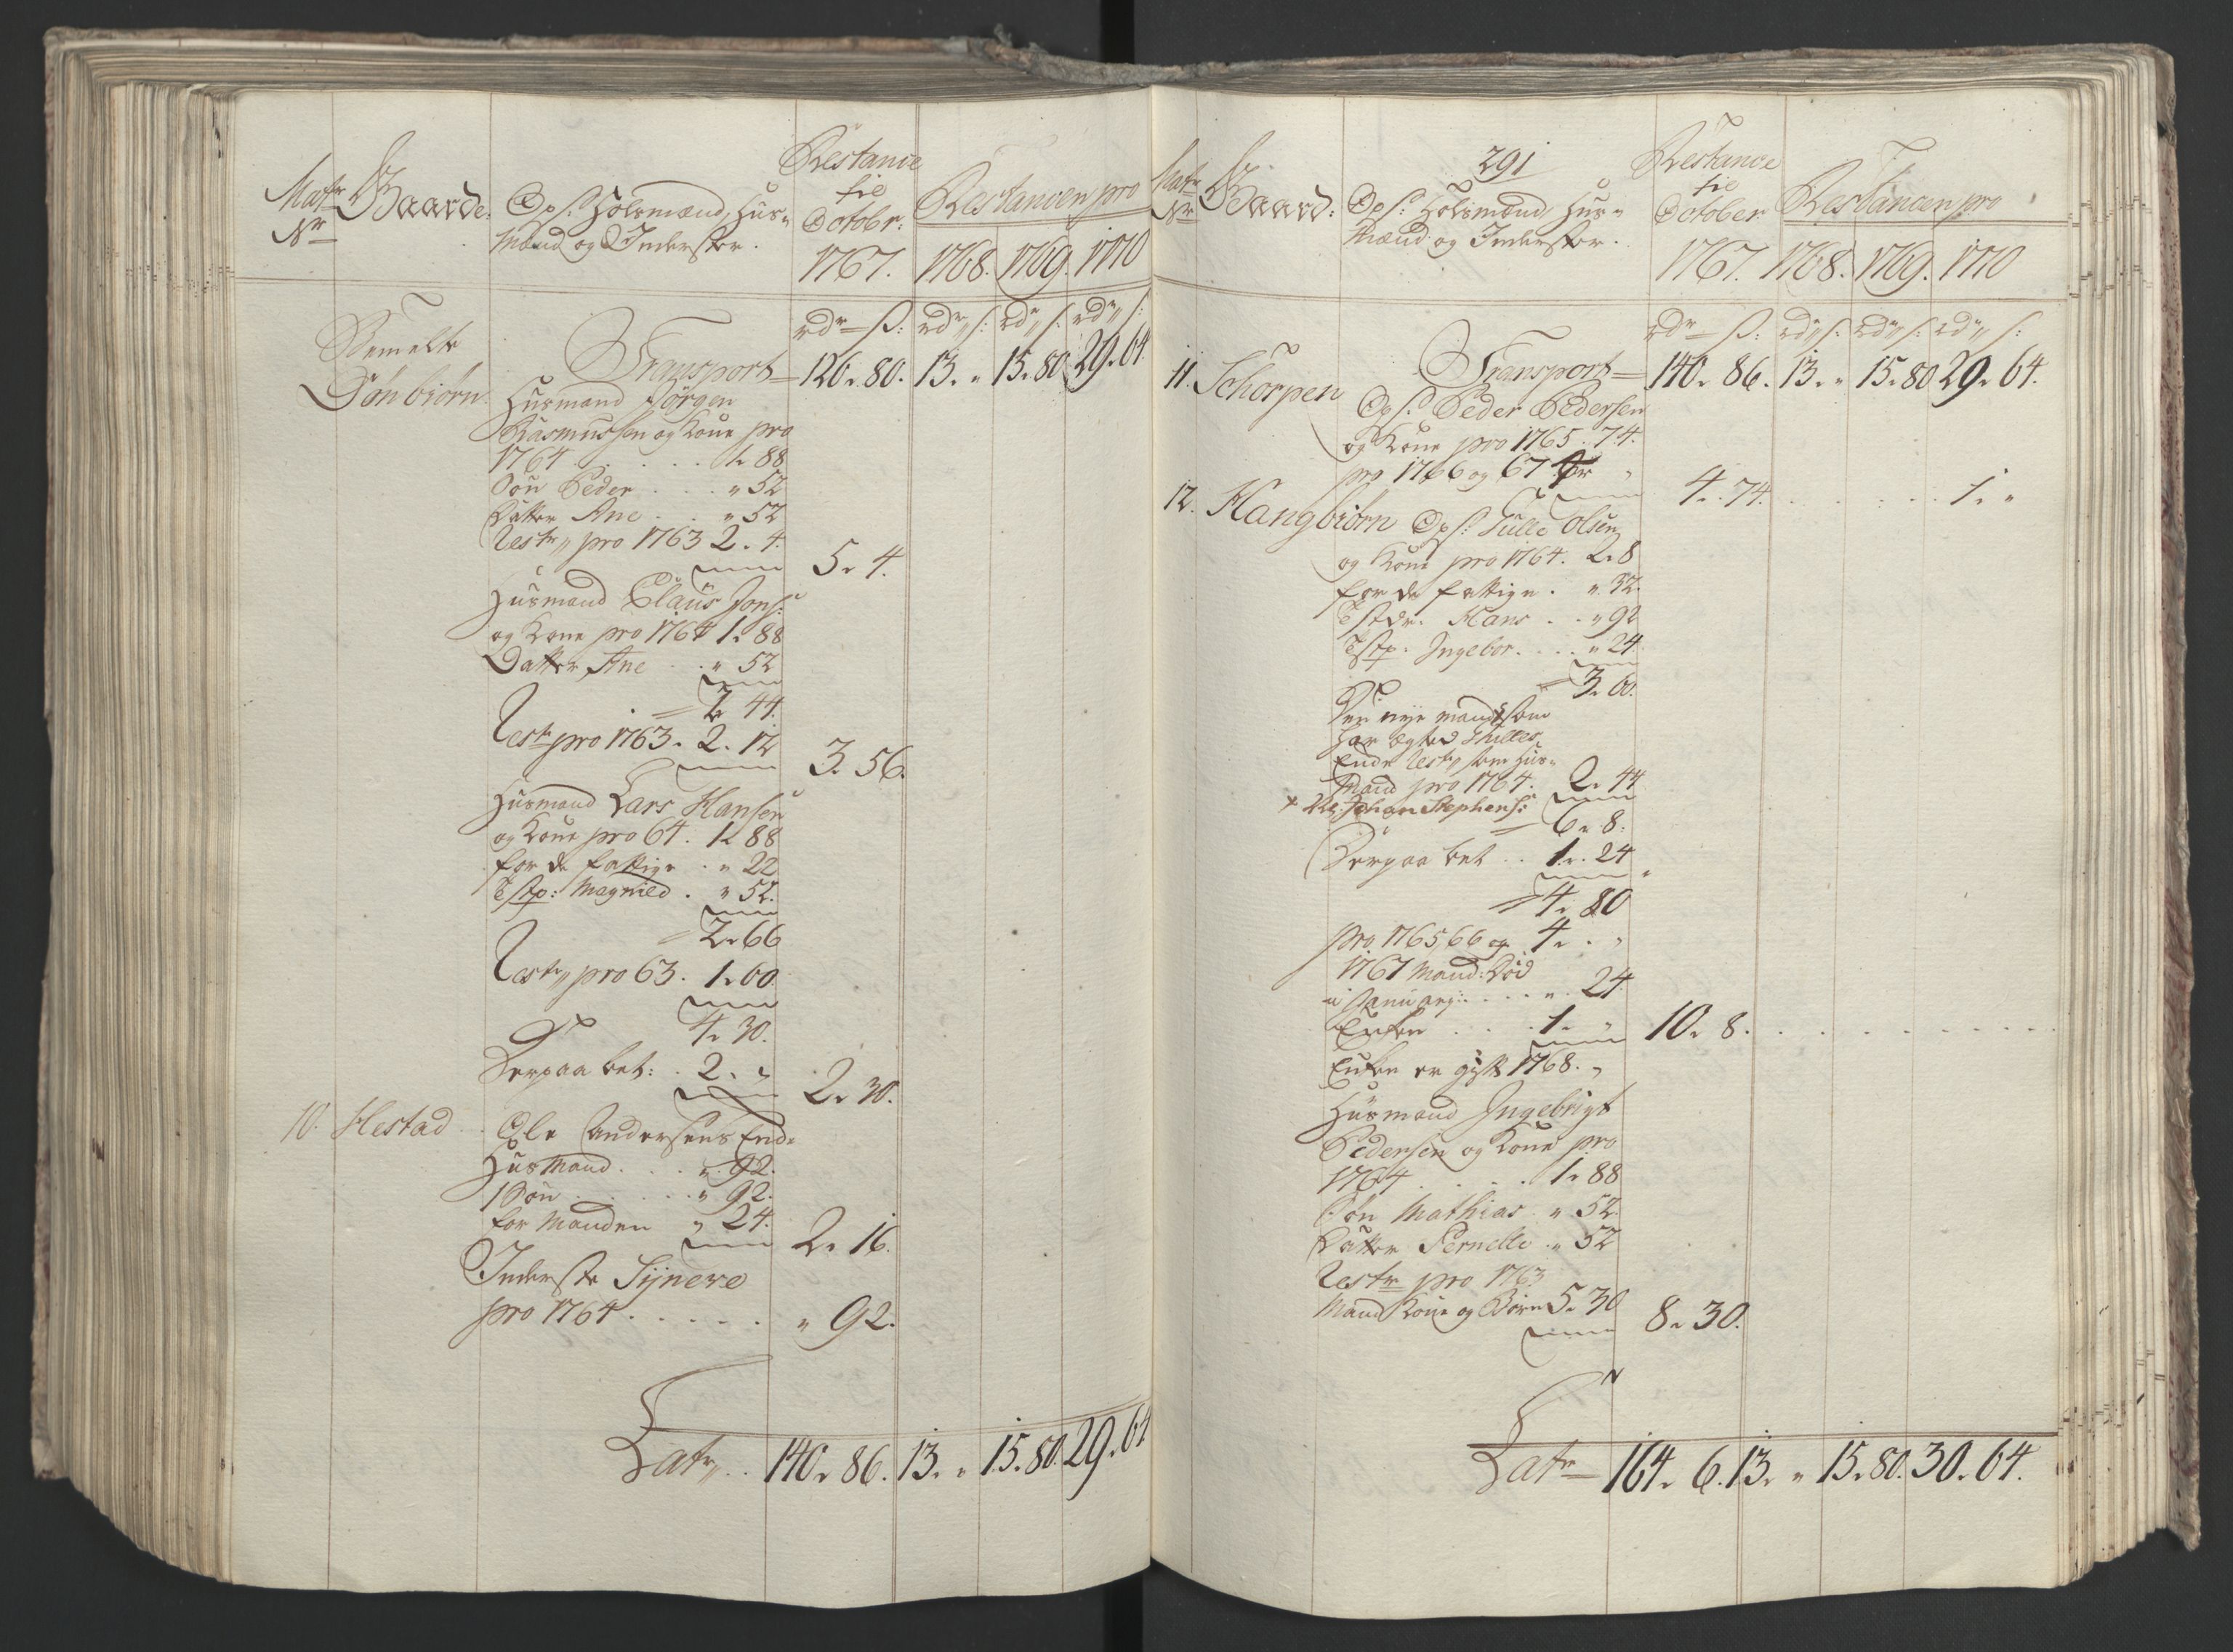 Matr Nr
Gaarde.
Ops: Holsmænd, Hus-
mænd og Inderster.
Restance
til
October:
1767.
Restancen pro
1768. 1769. 1770
rdr ß: rdr ß: rdr ß: rdr ß:
Bemelte
Sønbiørn.
Transport 126. 80. 13. " 15. 80 29. 64.
Husmand Jørgen
Rasmussen og Kone pro
1764 . . . . . 1. 88
Søn Peder . . . " 52
Datter Ane . . " 52
Restr pro 1763 2. 4.
5. 4.
Husmand Claus Jons:
og Kone pro 1764 1. 88
Datter Ane . . " 52
2. 44.
Restr pro 1763. 2. 12
3. 56.
Husmand Lars Hansen
og Kone pro 64. 1. 88
for de fattige . " 22
Tstp: Magnild . " 52.
2. 66
Restr pro 63. 1. 60.
4. 30.
Derpaa bet: . 2. "
2. 30.
10. Hestad
Ole Andersens Enke
Husmand . . . " 92.
1 Søn . . . . " 92.
for Manden " 24.
2. 16.
Inderste Sÿneve
pro 1764 . . . . . " 92.
Latr . . 140. 86. 13. " 15. 80. 29. 64
291
Matr Nr
Gaard:
Ops: Holsmænd, Hus-
mænd og Inderster.
Restance
til
October
1767.
Restancen pro
1768. 1769. 1770
rdr ß: rdr ß: rdr ß: rdr ß:
Transport 140. 86. 13. " 15. 80 29. 64.
11. Schorpen
Ops: Peder Pedersen
og Kone pro 1765. 74.
pro 1766 og 67 4 "
4. 74. . . . . . 1. "
12. Hangbiørn Ops: Gulle Olsen
og Kone pro 1764. 2. 8
for de fattige . " 32.
Tstdr. Hans . . " 92
Tstp. Ingebor. . . " 24
3. 60.
Den nye mand som
har ægted Gulles
Enke Restr som Hus-
mand pro 1764. 2. 44
+ Johan Stephens:
6. 8.
Derpaa bet . . 1. 24
4. 80
pro 1765, 66 og 4. . "
1767 Mand: død
i Januarj: . . . . " 24
Enken . . . . 1. "
10. 8. . . . . . .
Enken er gift 1768. "
Husmand Ingebrigt
Pedersen og Kone pro
1764 . . . . . 1. 88
Søn Mathias . " 52.
Datter Pernelle . " 52
Restr pro 1763
Mand Kone og Børn 5. 30
8. 30.
Latr 164. 6. 13. " 15. 80. 30. 64.